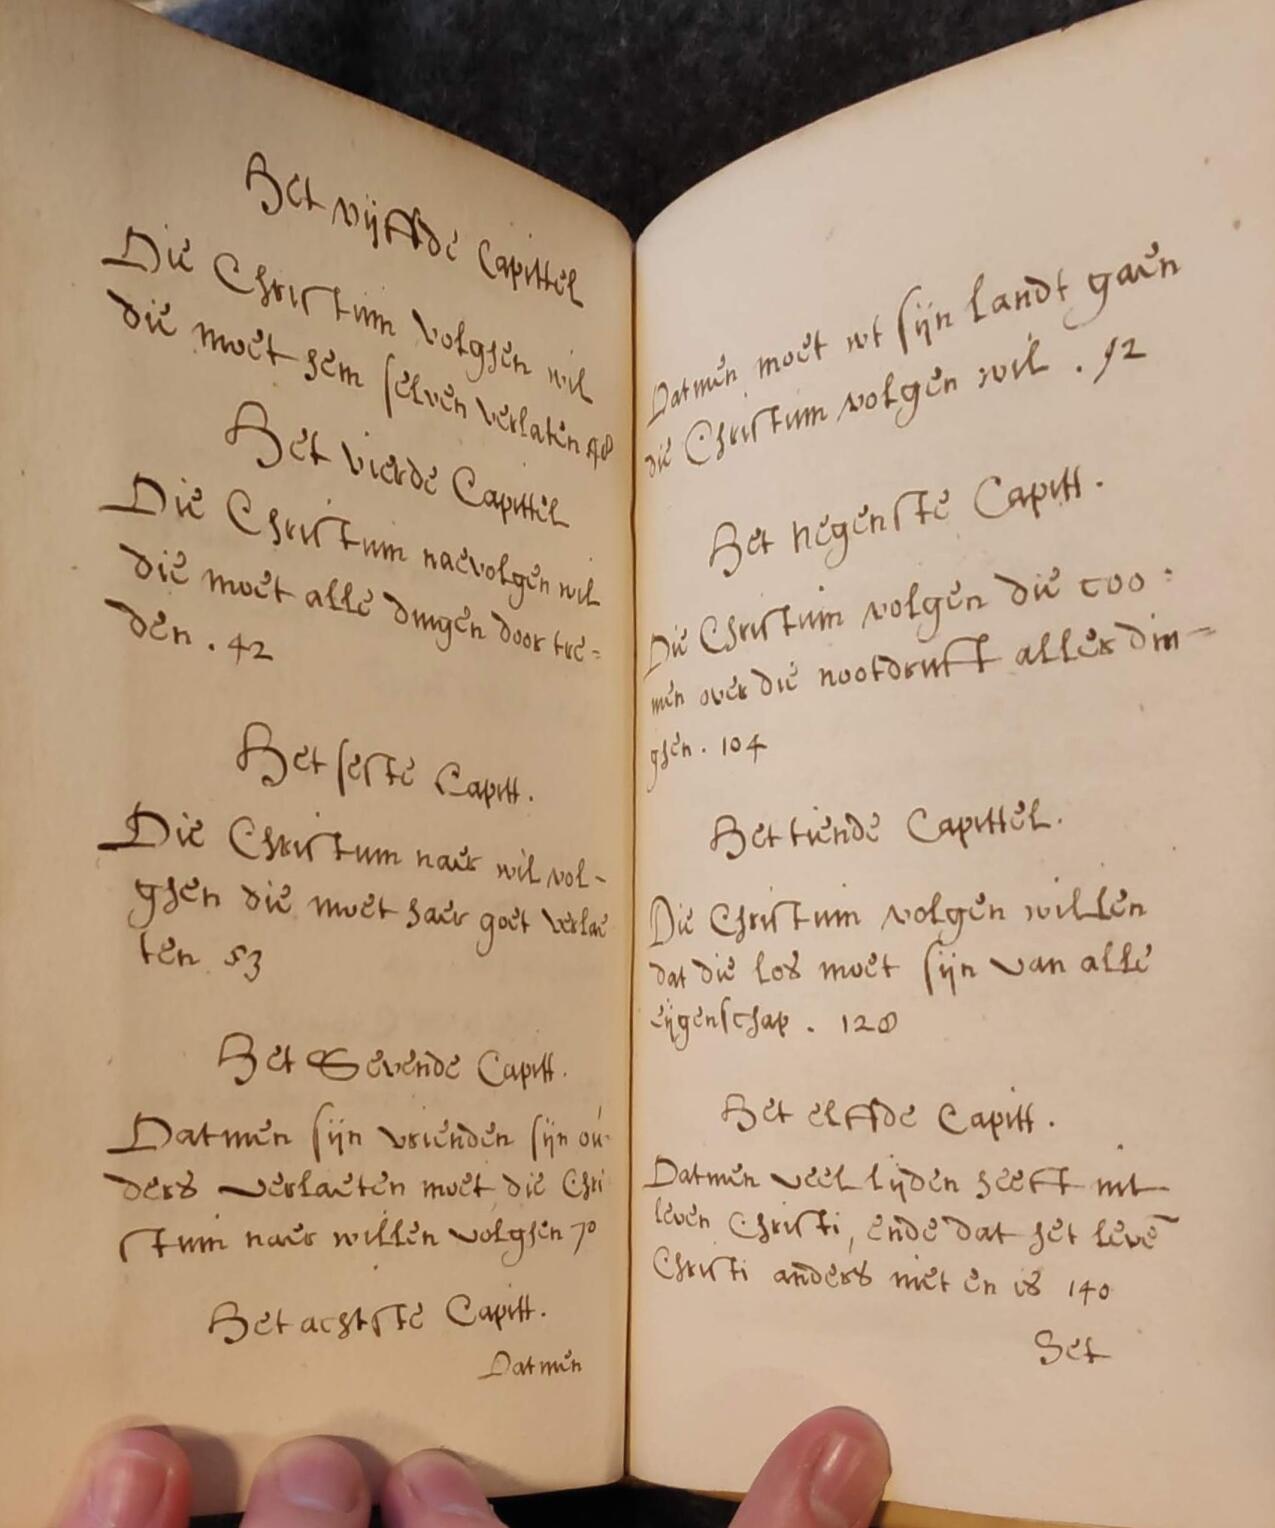 Het vijffde Capittel
Die Christum volghen wil
die moet hem selven verlaten 48
Het vierde Capittel
Die Christum naevolgen wil
die moet alle dingen door tre=
den . 42
Het seste Capitt.
Die Christum naer wil vol-
ghen die moet haer goet verlae
ten 53
Het Sevende Capitt.
Datmen sijn vrienden sijn ou-
ders verlaeten moet die Chri
stum naer willen volghen 70
Het achtste Capitt.
Datmen
Datmen moet wt sijn landt gaen
die Christum volgen wil . 92
Het negenste Capitt.
Die Christum volgen die coo:
men over die nootdruft aller din-
ghen . 104
Het tiende Capittel.
Die Christum volgen willen
dat die los moet sijn van alle
eijgenschap . 128
Het elffde Capitt.
Datmen veel lijden heeft int
leven Christi, ende dat het levē
Christi anders niet en is 140
Het